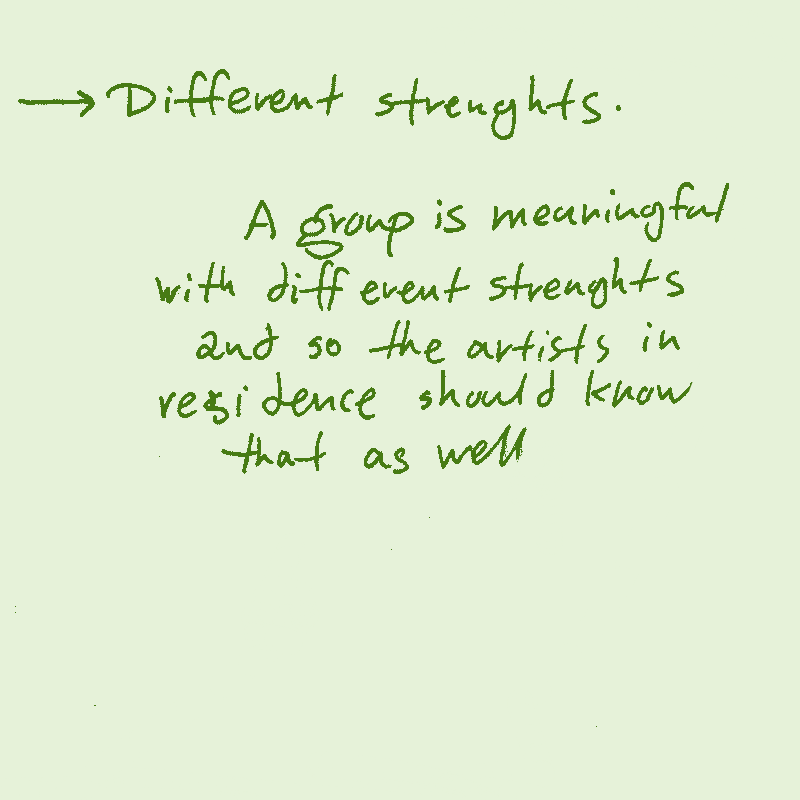 → Different strenghts.
A group is meaningful
with different strenghts
and so the artists in
residence should know
that as well